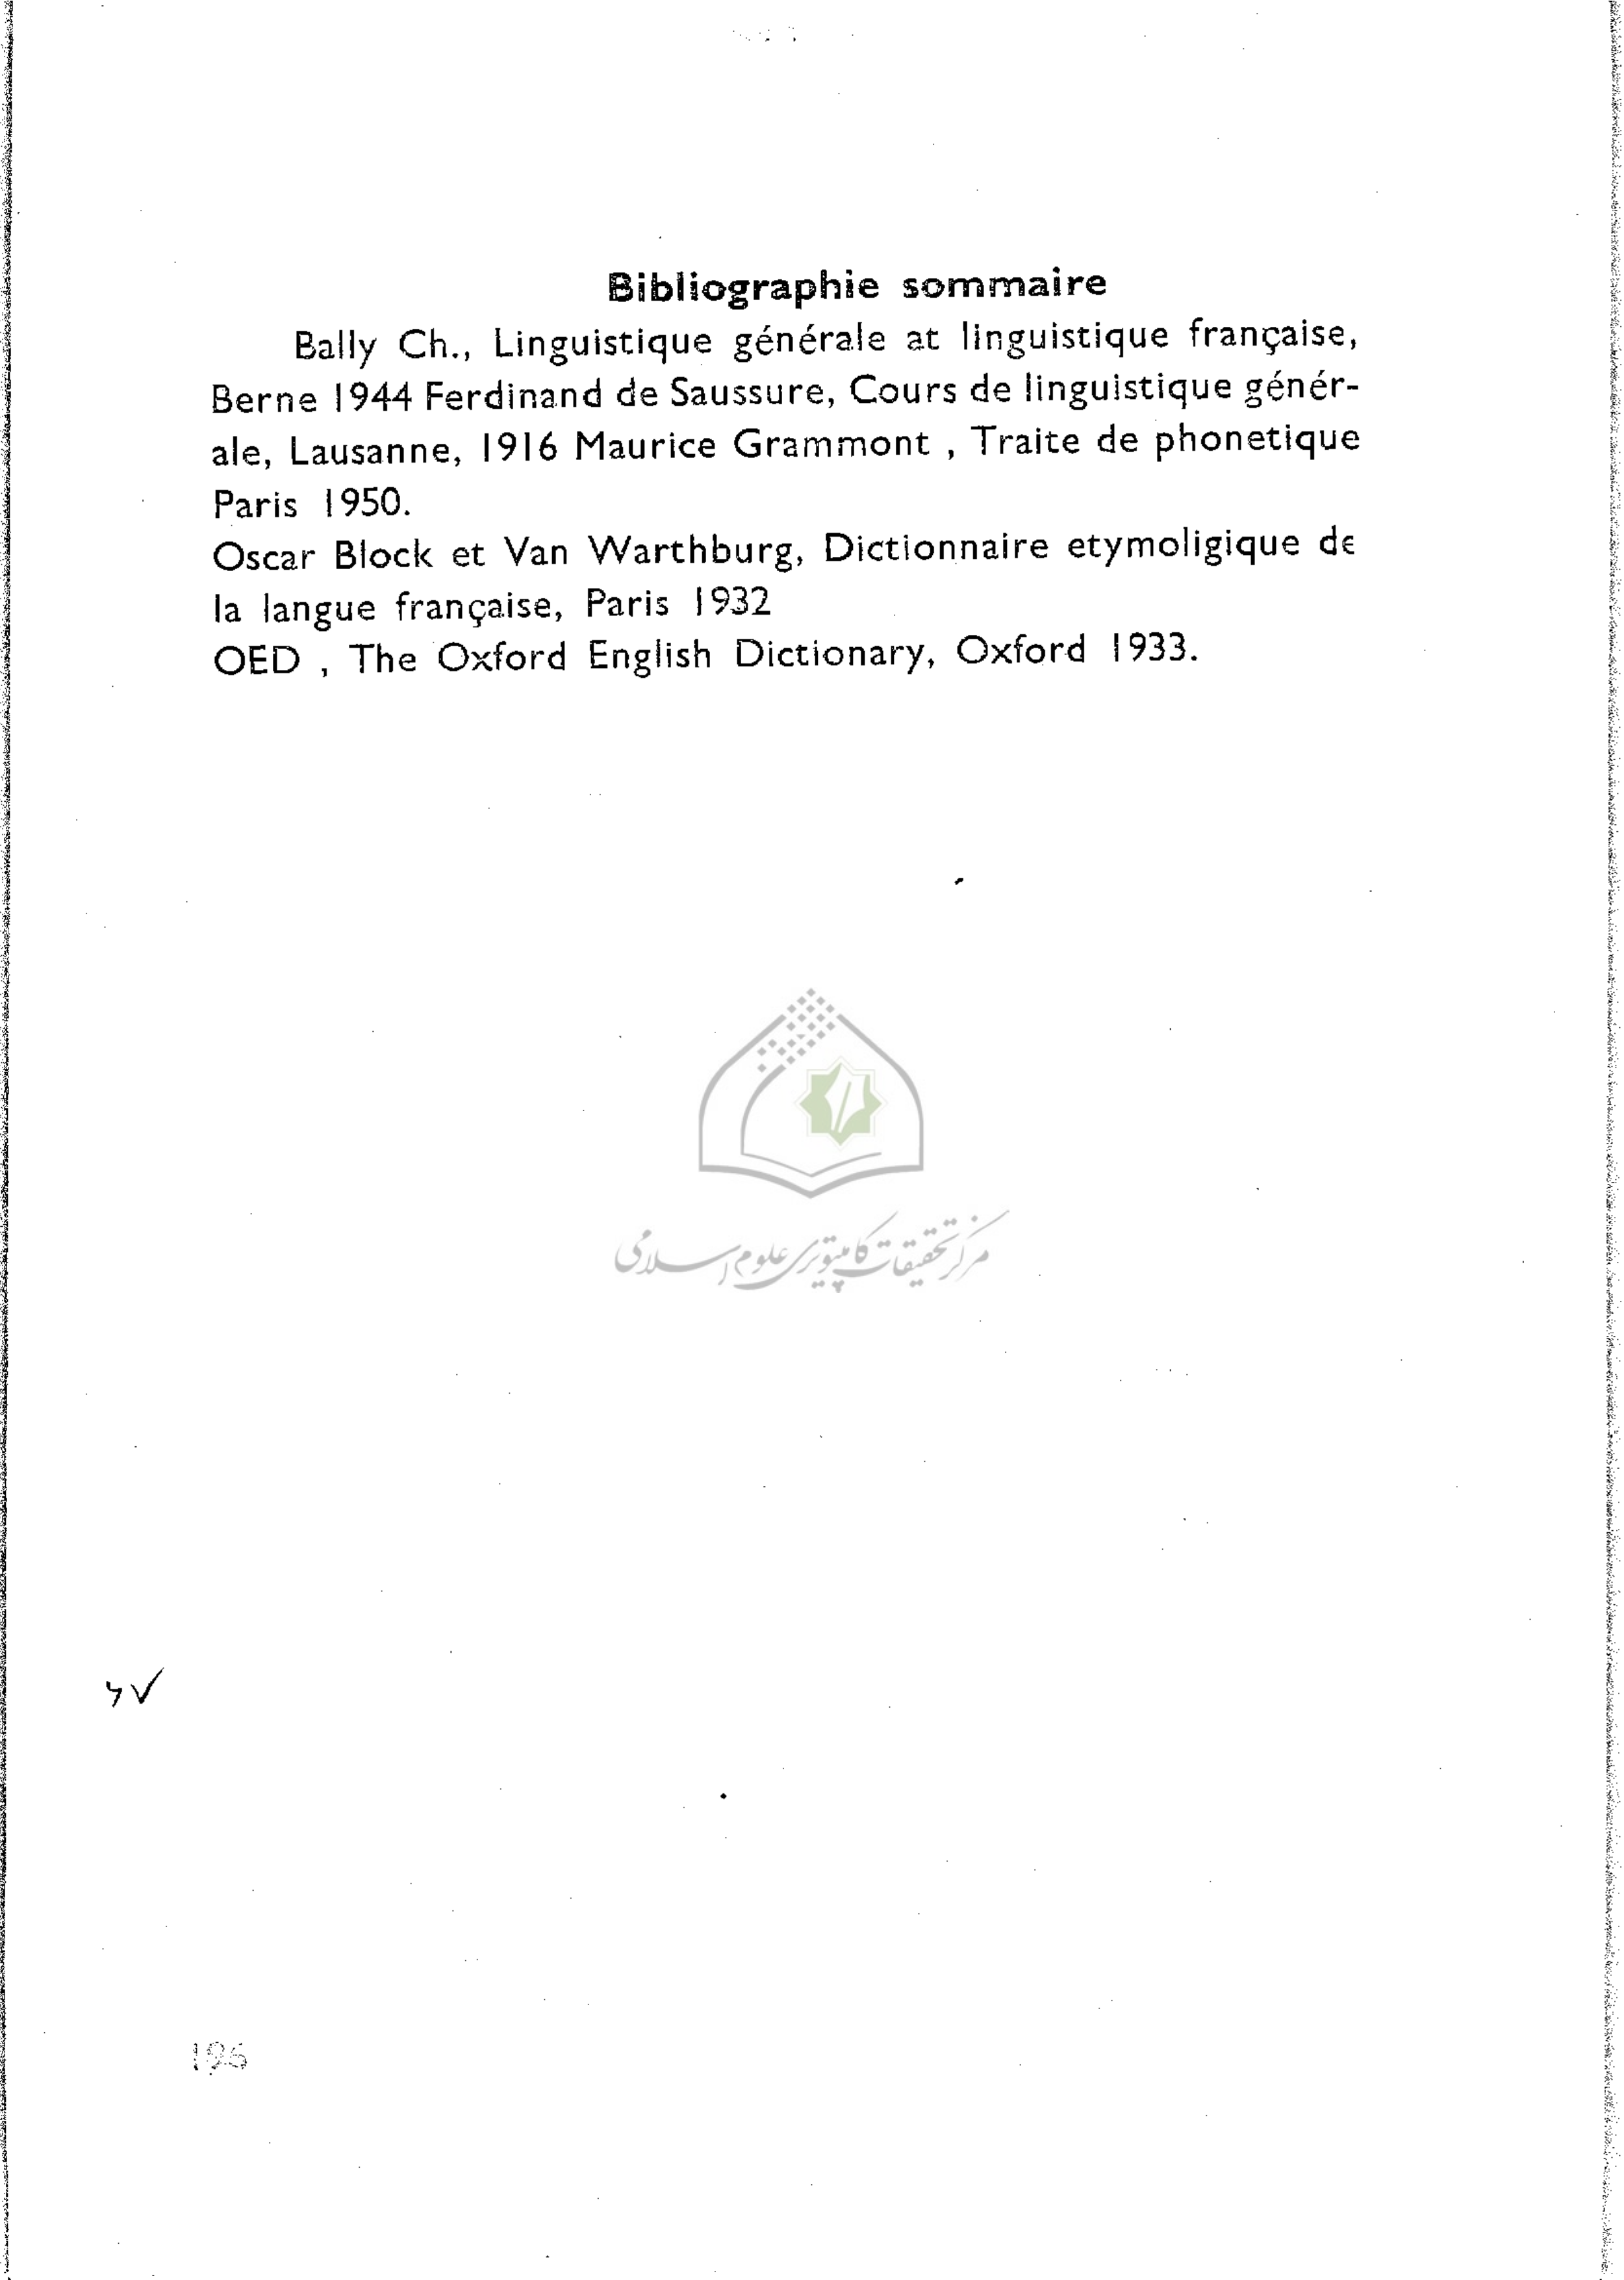 Bibliographie sommaire
Bally Ch., Linguistique générale at linguistique française,
Berne 1944 Ferdinand de Saussure, Cours de linguistique génér-
ale, Lausanne, 1916 Maurice Grammont , Traite de phonetique
Paris 1950.
Oscar Block et Van Warthburg, Dictionnaire etymoligique de
la langue française, Paris 1932
OED , The Oxford English Dictionary, Oxford 1933.
مرکز تحقیقات کامپیوتری علوم اسلامی
196